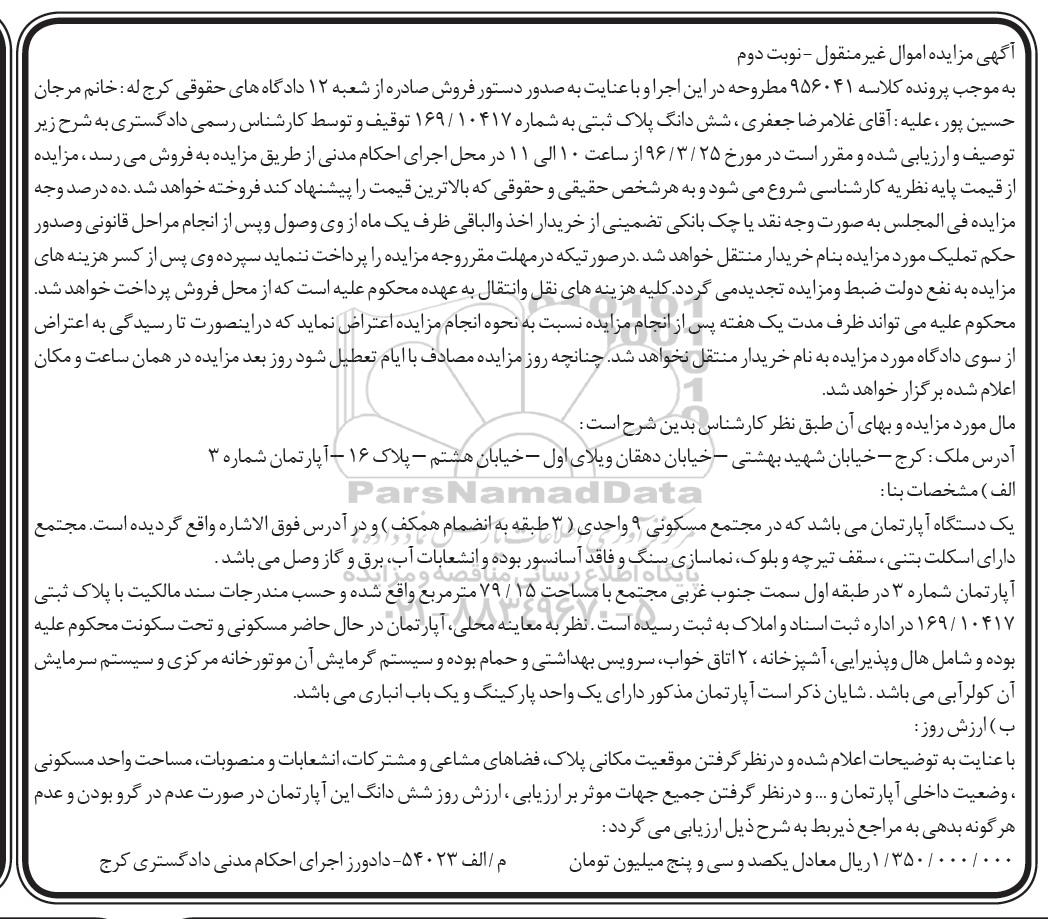 آگهی مزایده اموال غیرمنقول - نوبت دوم
به موجب پرونده کلاسه ۹۵۶۰۴۱ مطروحه در این اجرا و با عنایت به صدور دستور فروش صادره از شعبه ۱۲ دادگاه های حقوقی کرج له : خانم مرجان
حسین پور ، علیه : آقای غلامرضا جعفری ، شش دانگ پلاک ثبتی به شماره ۱۰۴۱۷ / ۱۶۹ توقیف و توسط کارشناس رسمی دادگستری به شرح زیر
توصیف و ارزیابی شده و مقرر است در مورخ ۹۶/۳/۲۵ از ساعت ۱۰ الی ۱۱ در محل اجرای احکام مدنی از طریق مزایده به فروش می رسد ، مزایده
از قیمت پایه نظریه کارشناسی شروع می شود و به هرشخص حقیقی و حقوقی که بالاترین قیمت را پیشنهاد کند فروخته خواهد شد .ده درصد وجه
مزایده فی المجلس به صورت وجه نقد یا چک بانکی تضمینی از خریدار اخذ والباقی ظرف یک ماه از وی وصول وپس از انجام مراحل قانونی وصدور
حکم تملیک مورد مزایده بنام خریدار منتقل خواهد شد .درصورتیکه درمهلت مقرروجه مزایده را پرداخت ننماید سپرده وی پس از کسر هزینه های
مزایده به نفع دولت ضبط ومزایده تجدیدمی گردد.کلیه هزینه های نقل وانتقال به عهده محکوم علیه است که از محل فروش پرداخت خواهد شد.
محکوم علیه می تواند ظرف مدت یک هفته پس از انجام مزایده نسبت به نحوه انجام مزایده اعتراض نماید که دراینصورت تا رسیدگی به اعتراض
از سوی دادگاه مورد مزایده به نام خریدار منتقل نخواهد شد. چنانچه روز مزایده مصادف با ایام تعطیل شود روز بعد مزایده در همان ساعت و مکان
اعلام شده برگزار خواهد شد.
مال مورد مزایده و بهای آن طبق نظر کارشناس بدین شرح است :
آدرس ملک : کرج – خیابان شهید بهشتی – خیابان دهقان ویلای اول – خیابان هشتم – پلاک ۱۶ – آپارتمان شماره ۳
ParsNamadData
الف ) مشخصات بنا :
یک دستگاه آپارتمان می باشد که در مجتمع مسکونی ۹ واحدی ( ۳ طبقه به انضمام همکف ) و در آدرس فوق الاشاره واقع گردیده است. مجتمع
دارای اسکلت بتنی ، سقف تیرچه و بلوک، نماسازی سنگ و فاقد آسانسور بوده و انشعابات آب، برق و گاز وصل می باشد .
پایگاه اطلاع رسانی مناقصه و مزایده
آپارتمان شماره ۳ در طبقه اول سمت جنوب غربی مجتمع با مساحت ۷۹/۱۵ مترمربع واقع شده و حسب مندرجات سند مالکیت با پلاک ثبتی
۰۲۱-۸۸۳۴۹۶۷۰-۵
۱۰۴۱۷ / ۱۶۹ در اداره ثبت اسناد و املاک به ثبت رسیده است . نظر به معاینه محلی، آپارتمان در حال حاضر مسکونی و تحت سکونت محکوم علیه
بوده و شامل هال وپذیرایی، آشپزخانه ، ۲ اتاق خواب، سرویس بهداشتی و حمام بوده و سیستم گرمایش آن موتورخانه مرکزی و سیستم سرمایش
آن کولرآبی می باشد . شایان ذکر است آپارتمان مذکور دارای یک واحد پارکینگ و یک باب انباری می باشد.
ب ) ارزش روز :
با عنایت به توضیحات اعلام شده و درنظر گرفتن موقعیت مکانی پلاک، فضاهای مشاعی و مشترکات، انشعابات و منصوبات، مساحت واحد مسکونی
، وضعیت داخلی آپارتمان و ... و درنظر گرفتن جمیع جهات موثر بر ارزیابی ، ارزش روز شش دانگ این آپارتمان در صورت عدم در گرو بودن و عدم
هرگونه بدهی به مراجع ذیربط به شرح ذیل ارزیابی می گردد :
۱/۳۵۰/۰۰۰/۰۰۰ ریال معادل یکصد و سی و پنج میلیون تومان م /الف ۵۴۰۲۳- دادورز اجرای احکام مدنی دادگستری کرج